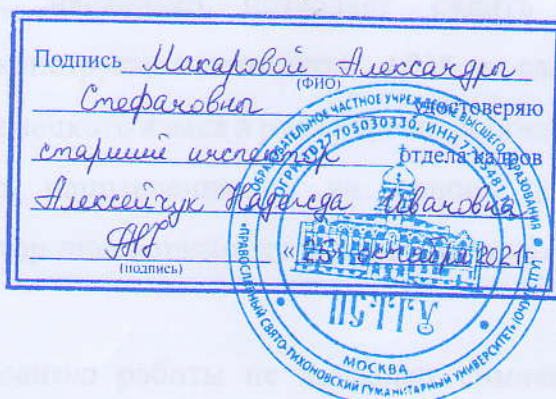 Подпись Макаровой Александры
(ФИО)
Стефановны удостоверяю
старший инспектор отдела кадров
Алексейчук Надежда Ивановна
(подпись)
«25» октября 2021г.
ОБРАЗОВАТЕЛЬНОЕ ЧАСТНОЕ УЧРЕЖДЕНИЕ ВЫСШЕГО ОБРАЗОВАНИЯ
«ПРАВОСЛАВНЫЙ СВЯТО-ТИХОНОВСКИЙ ГУМАНИТАРНЫЙ УНИВЕРСИТЕТ» (ОЧУ ПСТГУ)
ИНН
ПСТГУ
МОСКВА
работы не